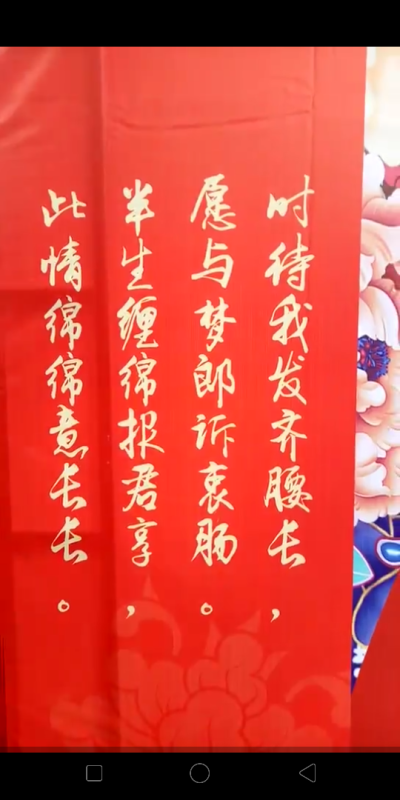 时待我发齐腰长，
愿与梦郎诉衷肠。
半生缠绵报君享，
此情绵绵意长长。